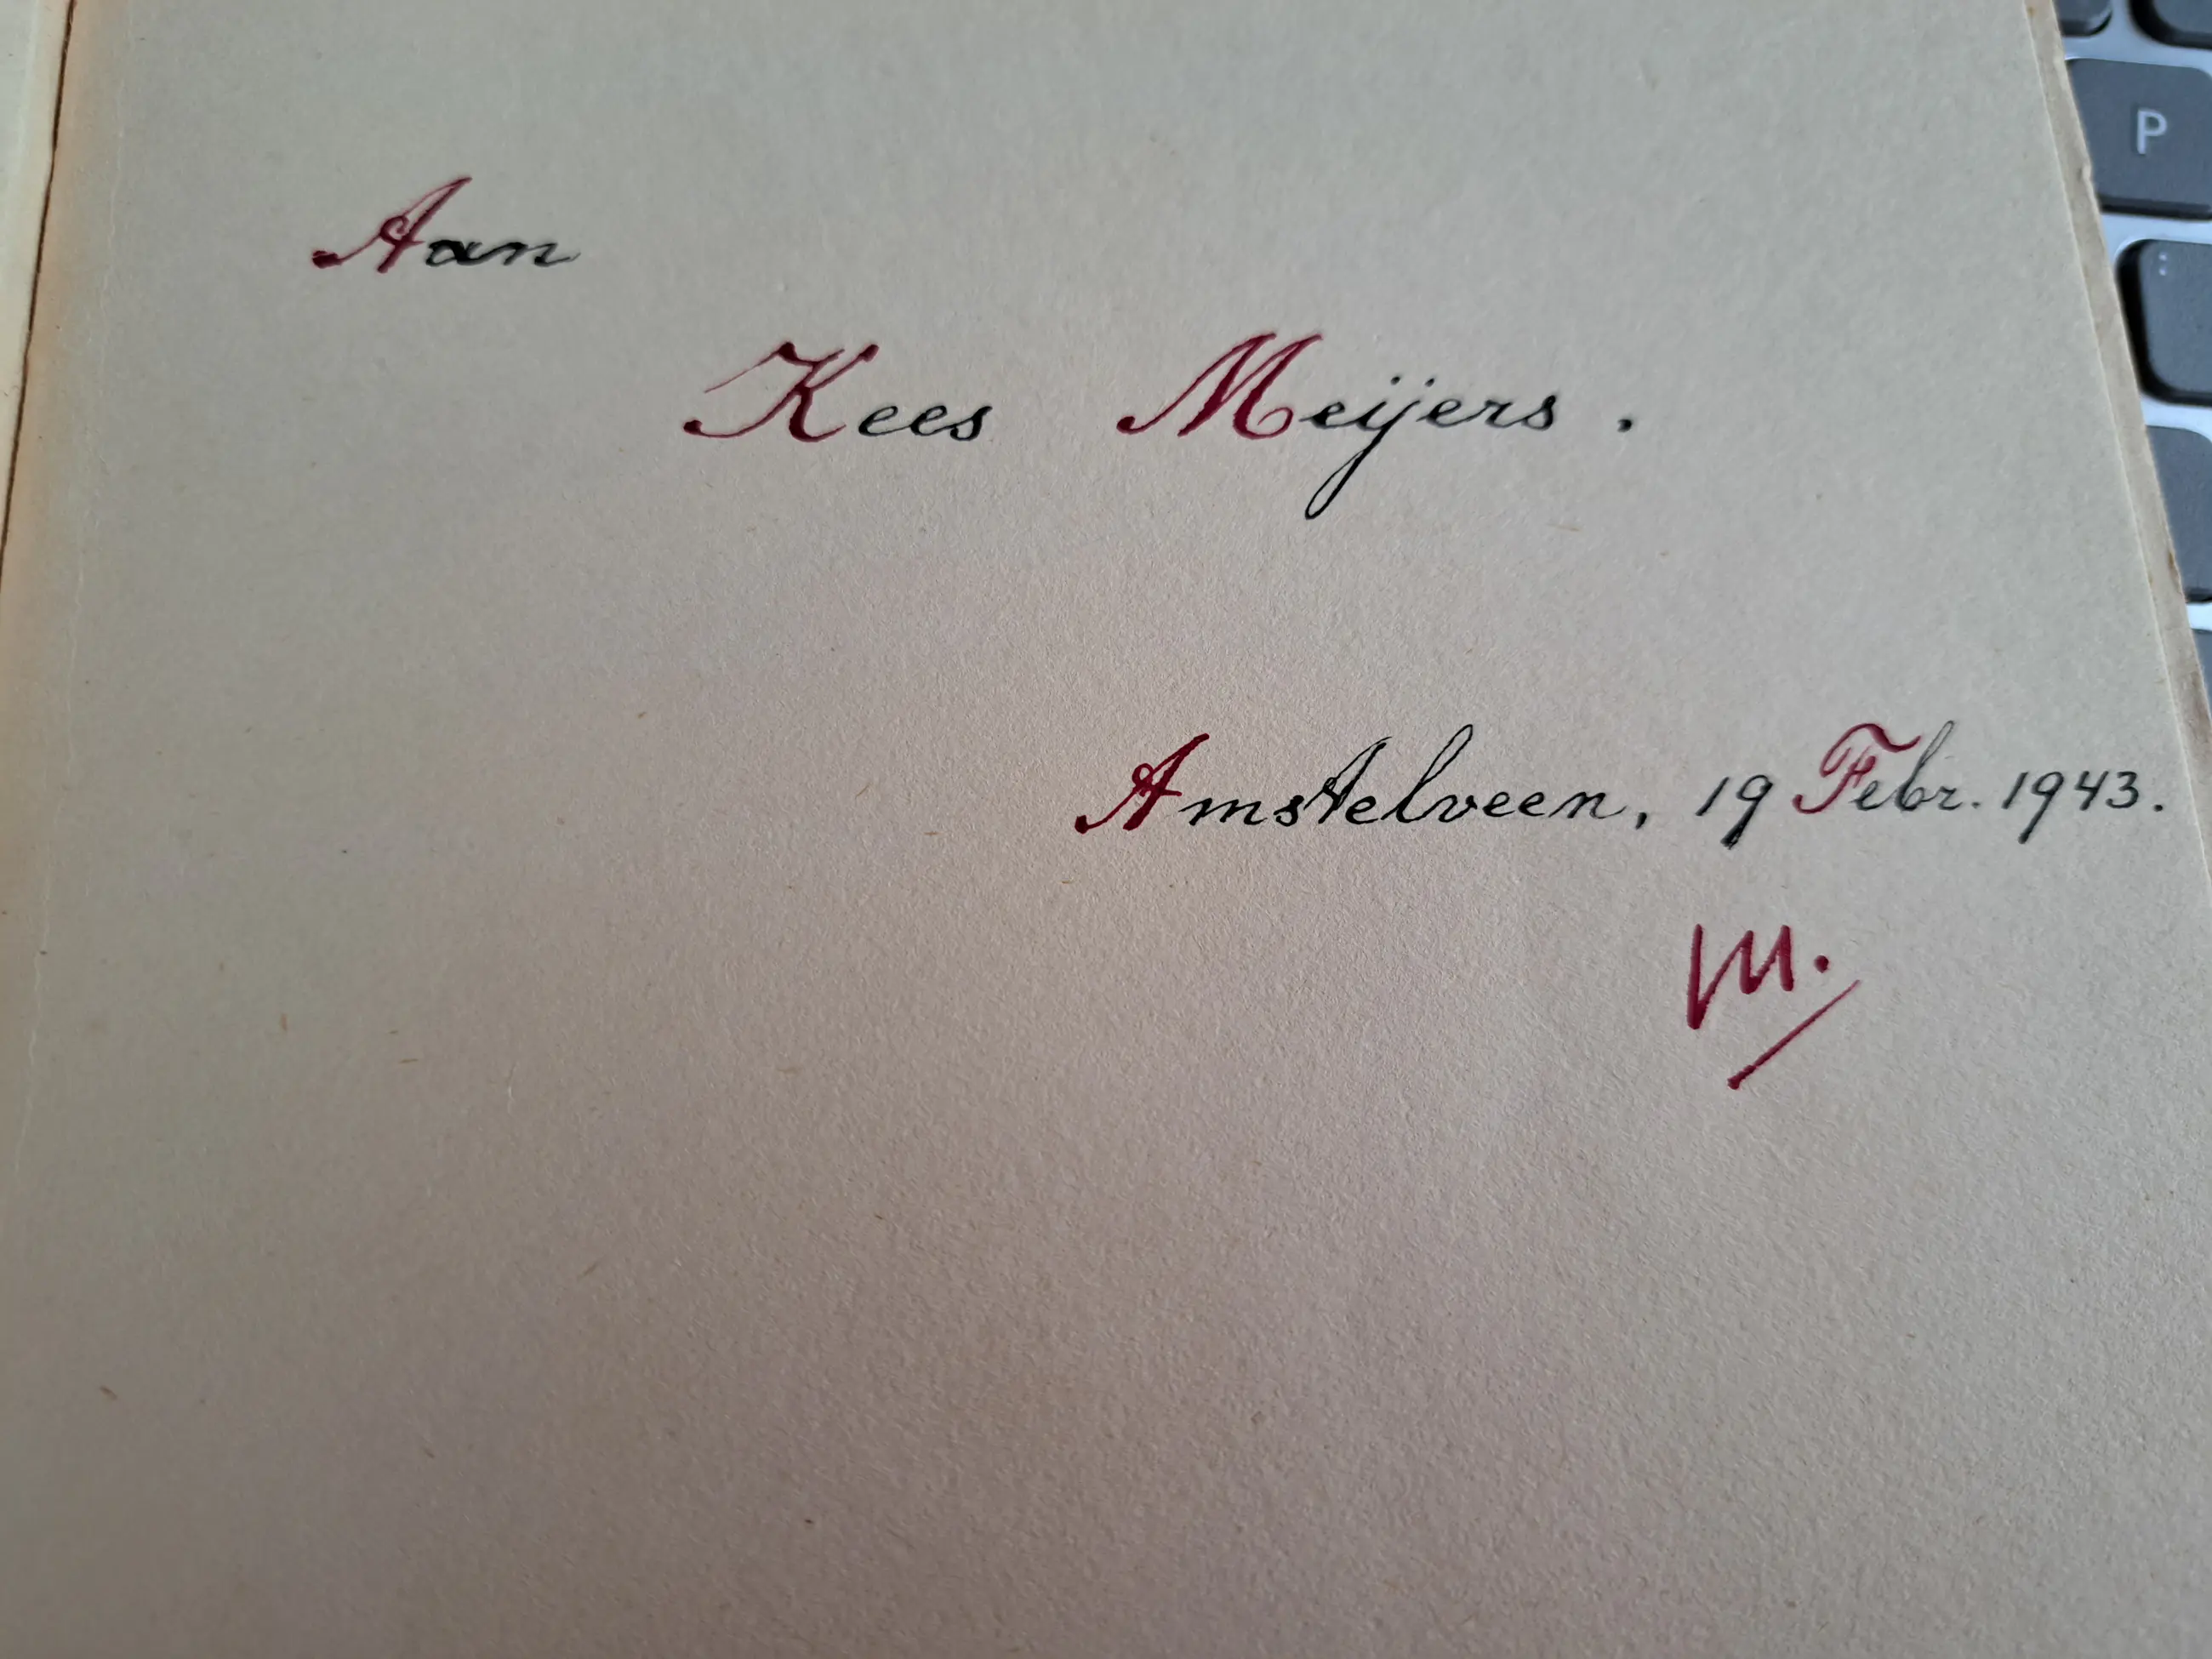 Aan
Kees Meijers.
Amstelveen, 19 Febr. 1943.
M.
P